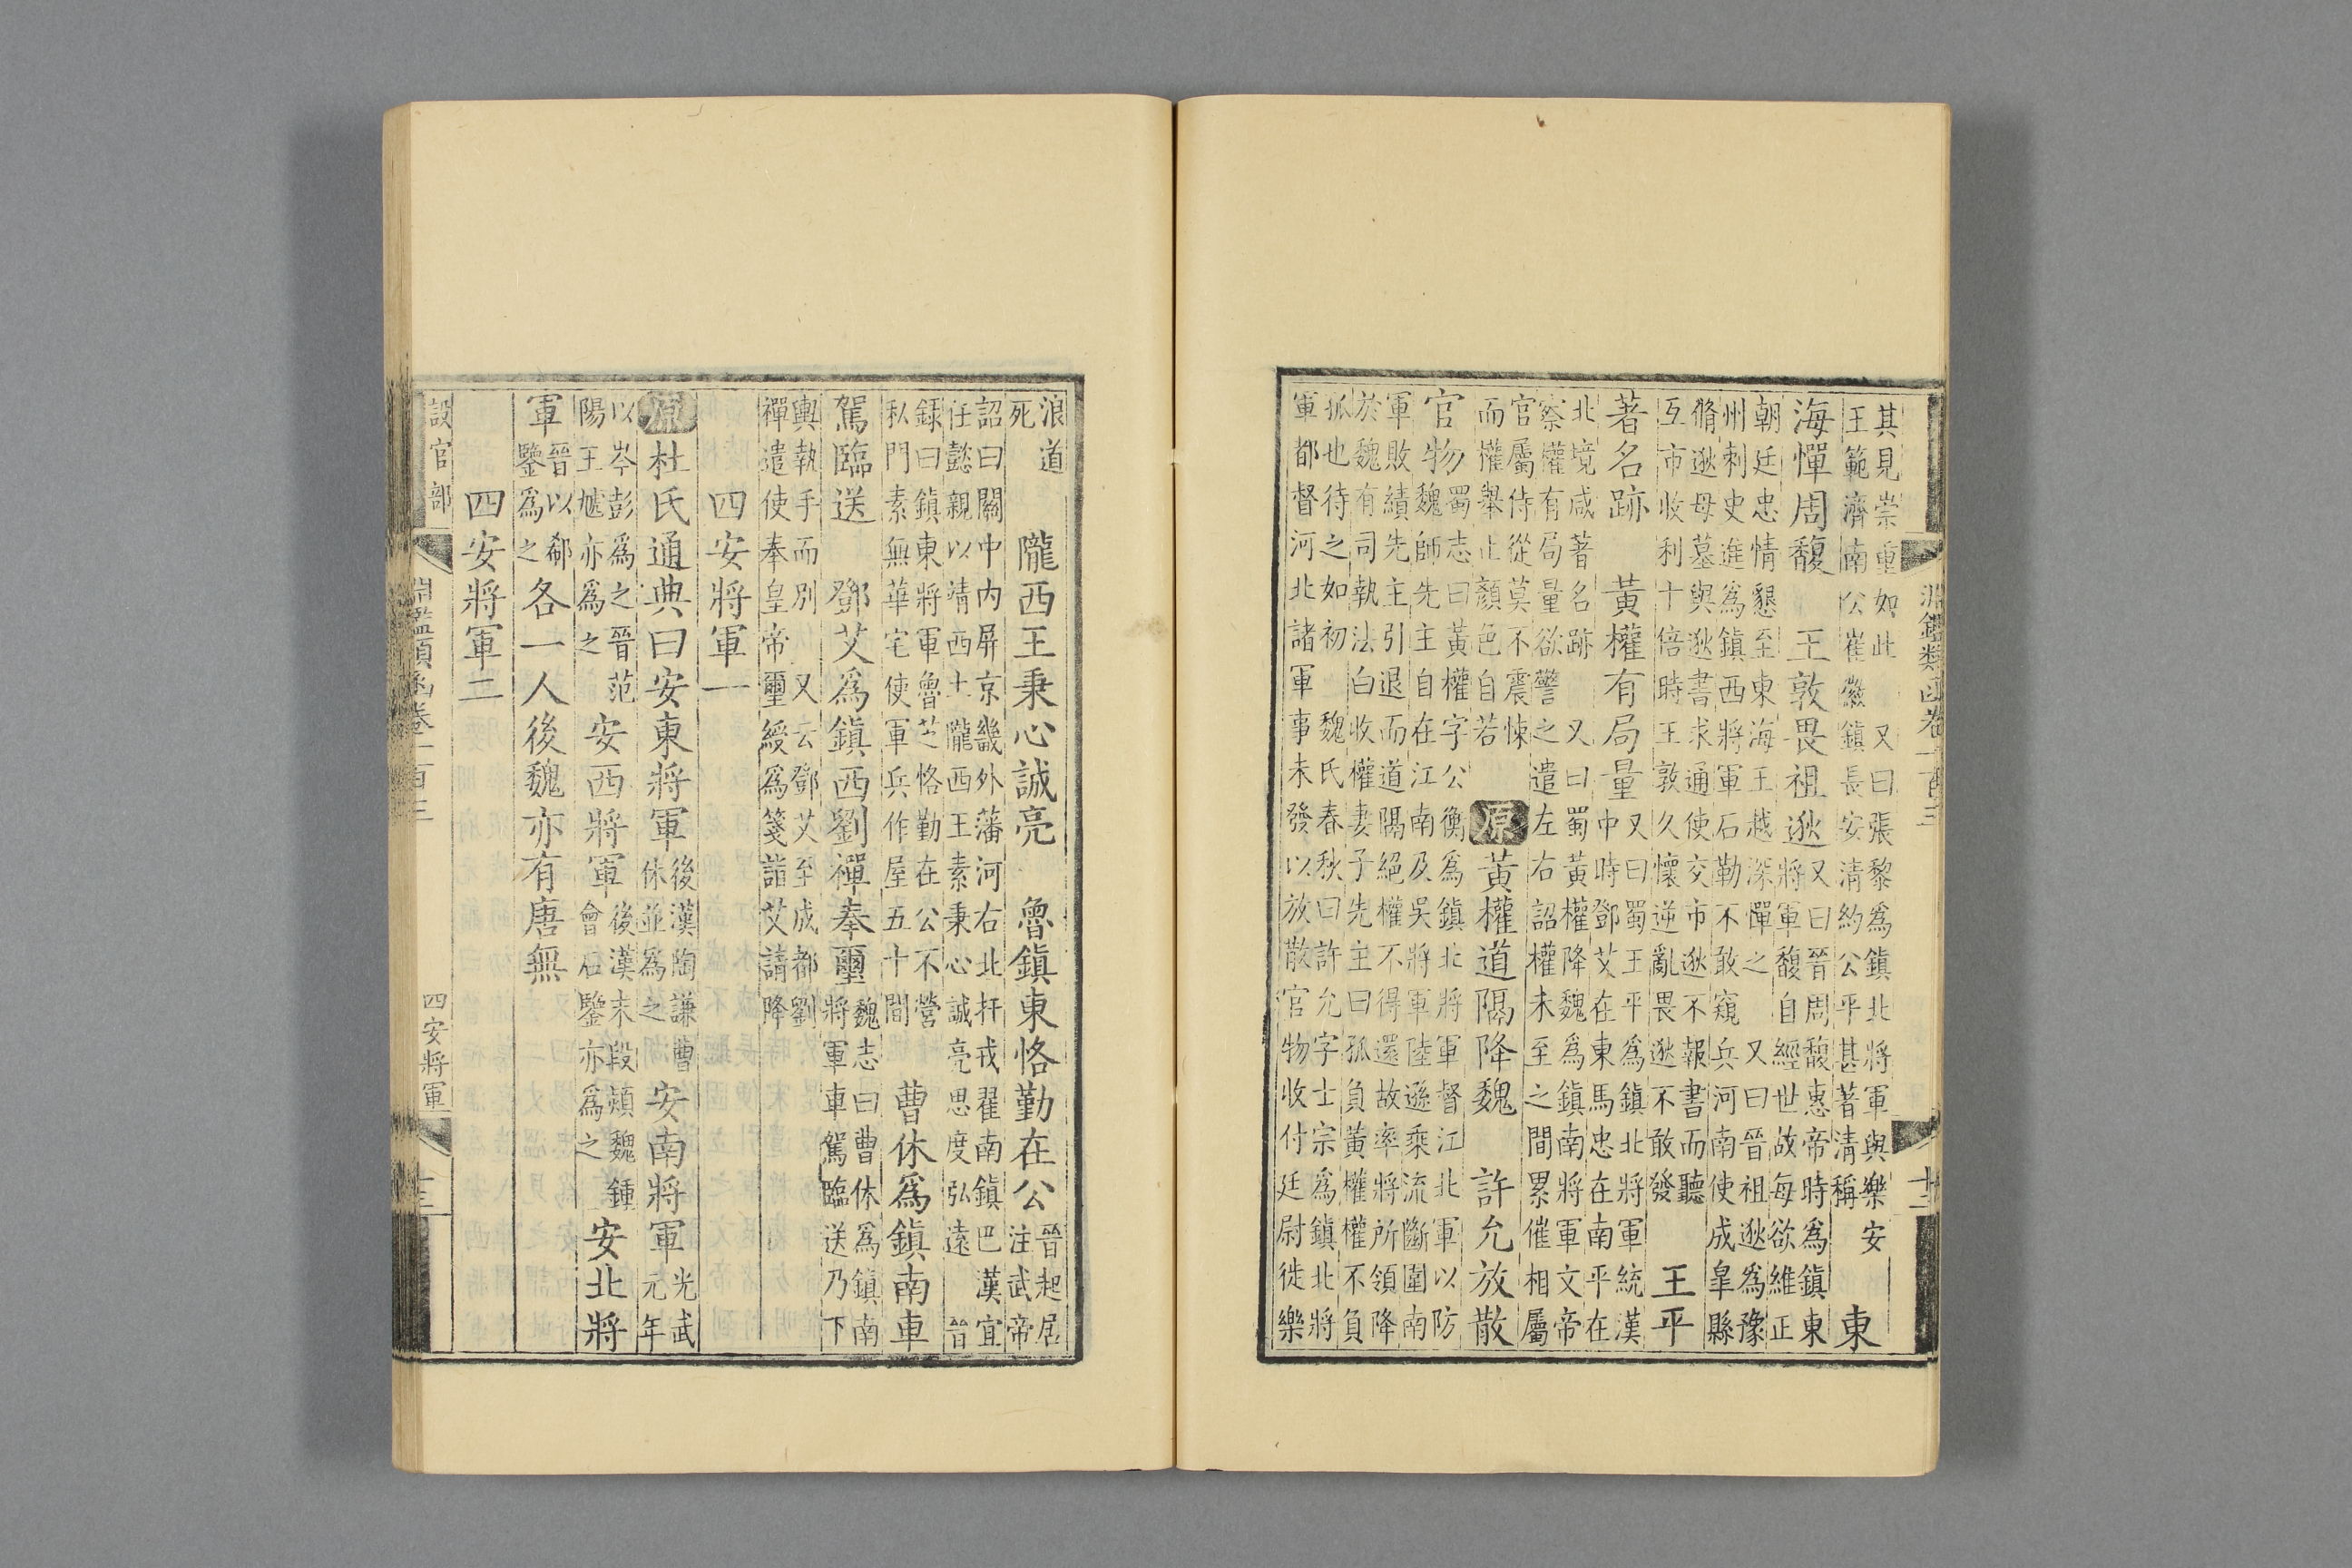 淵鑑類函卷一百三
其見崇重如此　又曰張黎爲鎮北將軍與樂安
王範濟南公崔徽鎮長安清約公平甚著清稱
東
海憚周馥　王敦畏祖逖
又曰晉周馥惠帝時爲鎮東
將軍馥自經世故每欲維正
朝廷忠情懇至東海王越深憚之　又曰晉祖逖爲豫
州刺史進爲鎮西將軍石勒不敢窺兵河南使成皐縣
脩逖母墓與逖書求通使交市逖不報書而聽
互市收利十倍時王敦久懷逆亂畏逖不敢發
王平
著名跡　黃權有局量
又曰蜀王平爲鎮北將軍統漢
中時鄧艾在東馬忠在南平在
北境咸著名跡　又曰蜀黃權降魏爲鎮南將軍文帝
察權有局量欲警之遣左右詔權未至之間累催相屬
官屬侍從莫不震悚
而權舉止顏色自若
原
黃權道隔降魏　許允放散
官物
蜀志曰黃權字公衡爲鎮北將軍督江北軍以防
魏師先主自在江南及吳將軍陸遜乘流斷圍南
軍敗績先主引退而道隔絕權不得還故率將所領降
於魏有司執法白收權妻子先主曰孤負黃權權不負
孤也待之如初　魏氏春秋曰許允字士宗爲鎮北將
軍都督河北諸軍事未發以放散官物收付廷尉徙樂
十二
浪道
死
隴西王秉心誠亮　魯鎮東恪勤在公
晉起居
注武帝
詔曰關中內屏京畿外藩河右北扞戎翟南鎮巴漢宜
任懿親以靖西土隴西王素秉心誠亮思度弘遠　晉
錄曰鎮東將軍魯芝恪勤在公不營
私門素無華宅使軍兵作屋五十間
曹休爲鎮南車
駕臨送　鄧艾爲鎮西劉禪奉璽
魏志曰曹休爲鎮南
將軍車駕臨送乃下
輿執手而別　又云鄧艾至成都劉
禪遣使奉皇帝璽綬爲箋詣艾請降
四安將軍一
原
杜氏通典曰安東將軍
後漢陶謙曹
休並爲之
安南將軍
光武
元年
以岑彭爲之晉范
陽王虓亦爲之
安西將軍
後漢末段熲魏鍾
會石鑒亦爲之
安北將
軍
晉以郗
鑒爲之
各一人後魏亦有唐無
四安將軍二
設官部
淵鑑類函卷一百三
四安將軍
十三